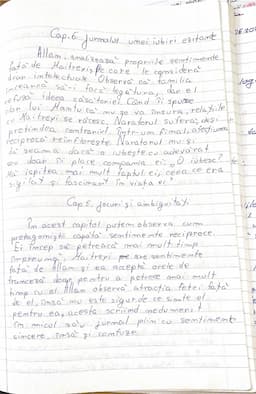 Cap. 6 Jurnalul unei iubiri ezitante
Allan analizează propriile sentimente
față de Maitreyi, pe care le consideră
doar intelectuale. Observă că familia
încearcă să-i facă legătura, dar el
refuză ideea căsătoriei. Când îi spune
lui Mantu că nu se va însura, relațiile
cu Maitreyi se răcesc. Naratorul suferă, deși
pretindea contrariul. Într-un final, afecțiunea
reciprocă reînflorește. Naratorul nu-și
dă seama dacă o iubește cu adevărat
sau doar îi place compania ei: „O iubesc?
Mă ispitea mai mult faptul ei, ceea ce era
și fascinant în viața ei"
Cap 5. Jocuri și ambiguități.
În acest capitol putem observa cum
protagoniștii capătă sentimente reciproce.
Ei încep să petreacă mai mult timp
împreună, Maitreyi sentimente
față de Allan și ea acceptă orele de
franceză doar pentru a petrece mai mult
timp cu el. Allan observă atracția fetei față
de el, însă nu este sigur de ce simte el
pentru ea, acesta scriind
în micul său jurnal prin cu sentimente
sincere, însă și confuze.